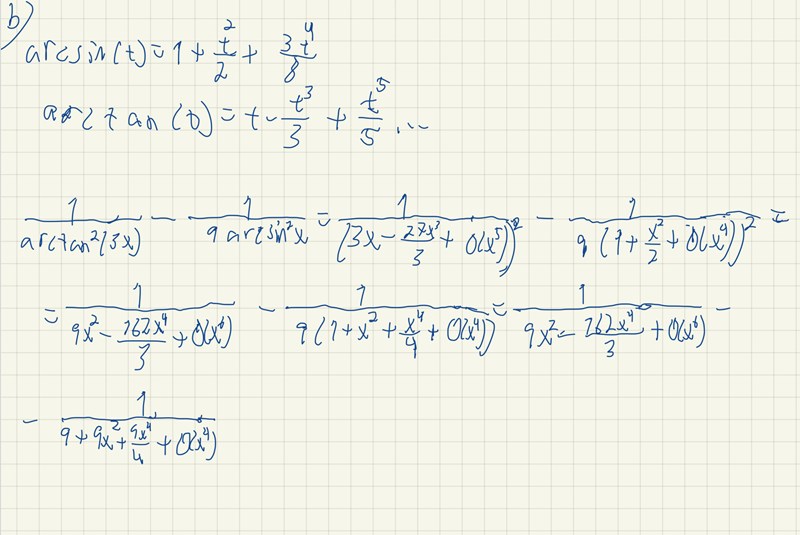 b)
arcsin(t) = 1 + t²/2 + 3t⁴/8
arctan(t) = t - t³/3 + t⁵/5 ...
1/(arctan²(3x)) - 1/(9 arcsin²x) = 1/(3x - 27x³/3 + O(x⁵))² - 1/(9(1 + x²/2 + O(x⁴))²) =
= 1/(9x² - 162x⁴/3 + O(x⁶)) - 1/(9(1 + x² + x⁴/4 + O(x⁴))) = 1/(9x² - 162x⁴/3 + O(x⁶)) -
- 1/(9 + 9x² + 9x⁴/4 + O(x⁴))